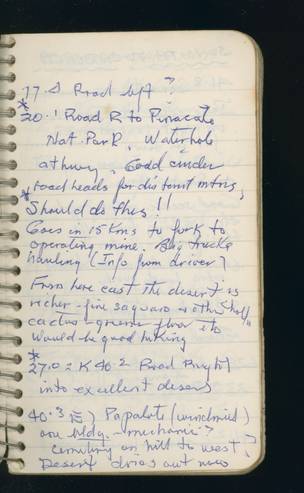 17.8 Road left ?
* 20.1 Road R to Pinacate
Nat. Park, Waterhole
at hwy, Good cinder
road heads for distant mtns,
* Should do this !!
Goes in 15 Kms to fork to
operating mine. Big trucks
hauling (Info from driver)
From here east the desert is
richer - fine saguaro & other tall
cactus - greener flowers etc
Would be good hiking
* 27.0 = K 40 = Road Right
into excellent desert
40.3 Papalote (windmill)
one bldg. - mechanic?
cemetery on hill to west?
Desert dries out now